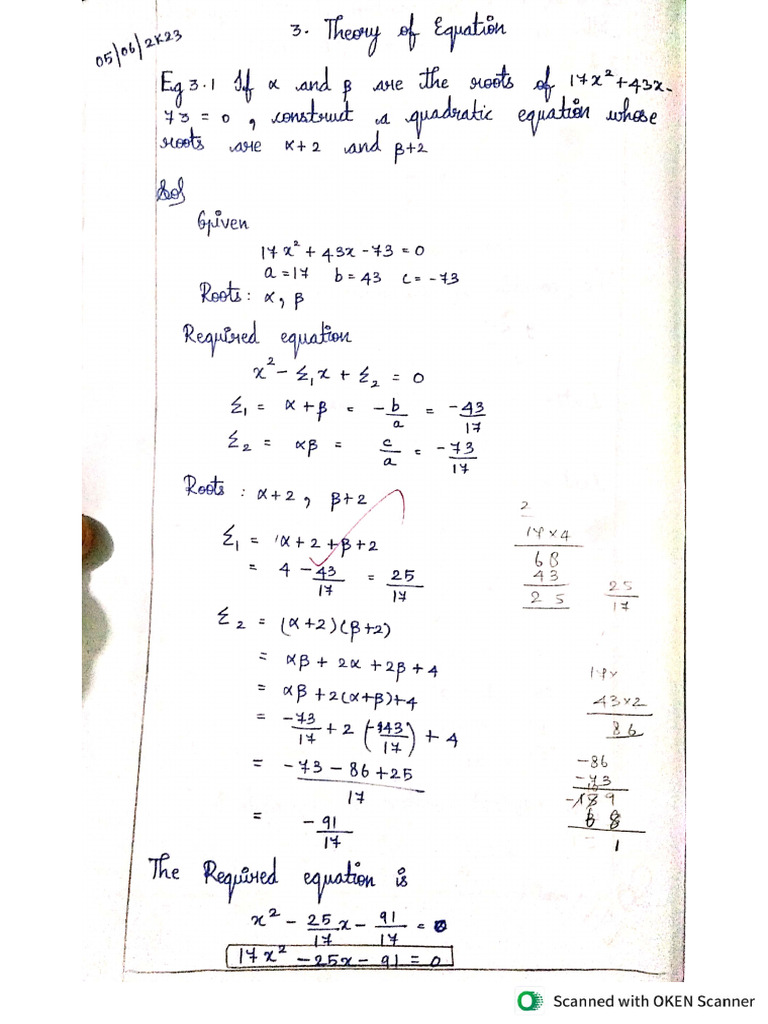 05/06/2K23
3. Theory of Equation
Eg 3.1 If α and β are the roots of 17x² + 43x -
73 = 0, construct a quadratic equation whose
roots are α+2 and β+2
Sol
Given
17x² + 43x - 73 = 0
a = 17 b = 43 c = -73
Roots : α, β
Required equation
x² - Σ₁x + Σ₂ = 0
Σ₁ = α + β = -b/a = -43/17
Σ₂ = αβ = c/a = -73/17
Roots : α+2, β+2
Σ₁ = α+2+β+2
= 4 - 43/17 = 25/17
Σ₂ = (α+2)(β+2)
= αβ + 2α + 2β + 4
= αβ + 2(α+β) + 4
= -73/17 + 2(-43/17) + 4
= -73 - 86 + 25 / 17
= -91/17
The Required equation is
x² - 25/17 x - 91/17 = 0
17x² - 25x - 91 = 0
2
17 × 4
68
43
25
25/17
17×
43×2
86
-86
-73
1
Scanned with OKEN Scanner